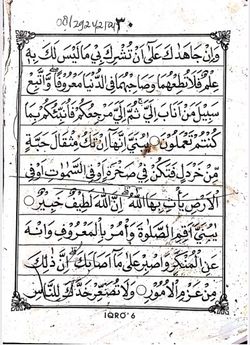 وَاِنْ جَاهَدٰكَ عَلٰٓى اَنْ تُشْرِكَ بِيْ مَا لَيْسَ لَكَ بِهٖ
عِلْمٌ فَلَا تُطِعْهُمَا وَصَاحِبْهُمَا فِى الدُّنْيَا مَعْرُوْفًا وَّاتَّبِعْ
سَبِيْلَ مَنْ اَنَابَ اِلَيَّ ثُمَّ اِلَيَّ مَرْجِعُكُمْ فَاُنَبِّئُكُمْ بِمَا
كُنْتُمْ تَعْمَلُوْنَ ۞ يٰبُنَيَّ اِنَّهَآ اِنْ تَكُ مِثْقَالَ حَبَّةٍ
مِّنْ خَرْدَلٍ فَتَكُنْ فِيْ صَخْرَةٍ اَوْ فِى السَّمٰوٰتِ اَوْ فِى
الْاَرْضِ يَأْتِ بِهَا اللّٰهُ اِنَّ اللّٰهَ لَطِيْفٌ خَبِيْرٌ
يٰبُنَيَّ اَقِمِ الصَّلٰوةَ وَأْمُرْ بِالْمَعْرُوْفِ وَانْهَ
عَنِ الْمُنْكَرِ وَاصْبِرْ عَلٰى مَآ اَصَابَكَ اِنَّ ذٰلِكَ
مِنْ عَزْمِ الْاُمُوْرِ ۞ وَلَا تُصَعِّرْ خَدَّكَ لِلنَّاسِ
IQRO' 6